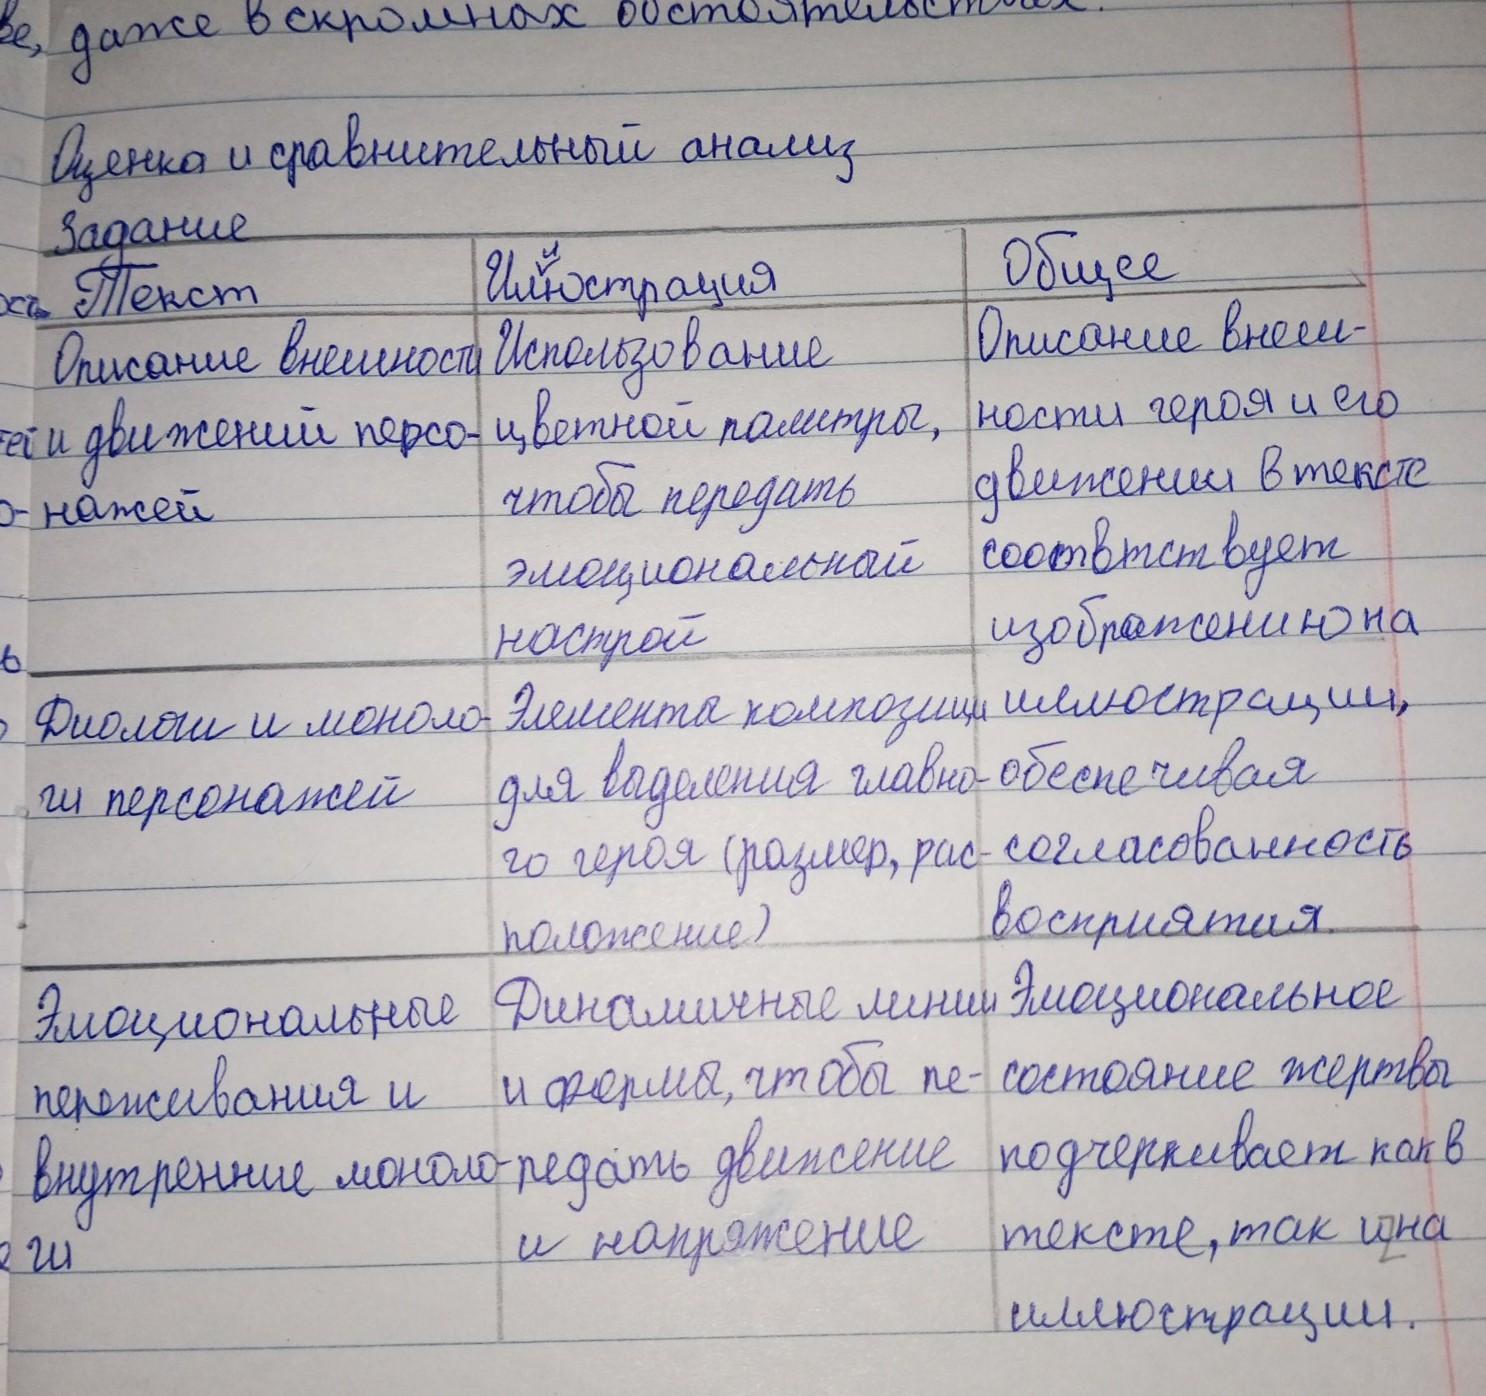 ве, даже в скромных обстоятельствах.
Оценка и сравнительный анализ
Задание
Текст
Иллюстрация
Общее
Описание внешности
и движений персо-
нажей
Использование
цветной палитры,
чтобы передать
эмоциональный
настрой
Описание внеш-
ности героя и его
движении в тексте
соотвтствует
изображению на
иллюстрации,
обеспечивая
согласованность
восприятия.
Диологи и моноло-
ги персонажей
Элементы композици
для выделения главно-
го героя (размер, рас-
положение)
Эмоциональные
переживания и
внутренние моноло-
ги
Динамичные линии
и формы, чтобы пе-
редать движение
и напряжение
Эмоциональное
состояние жертвы
подчеркивает как в
тексте, так и на
иллюстрации.